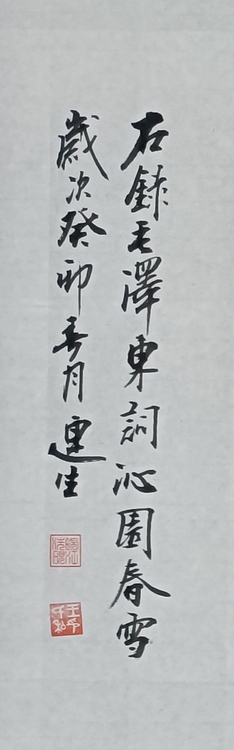 右錄毛澤東詞沁園春雪
歲次癸卯春月連生